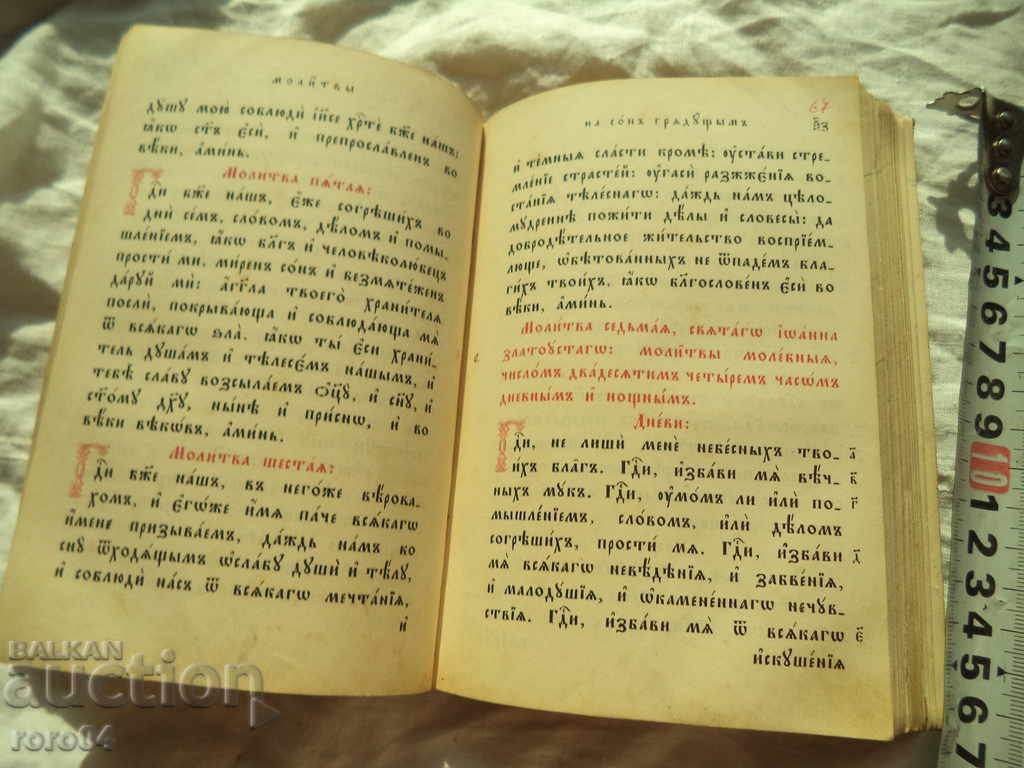 МОЛИ̑ТВЫ
дꙋ́шꙋ мою̀ соблюдѝ і҆и҃се хрⷭ҇тѐ бж҃е на́шъ:
ꙗ҆́кѡ ст҃ъ є҆сѝ, и҆ препросла́вленъ во
вѣ́ки, а҆ми́нь.
Моли́тва пѧ́таѧ:
Гдⷭ҇и бж҃е на́шъ, є҆́же согрѣши́хъ во
днѝ се́мъ, сло́вомъ, дѣ́ломъ и҆ помы-
шле́нїемъ, ꙗ҆́кѡ бл҃гъ и҆ человѣколю́бецъ
прости́ ми. ми́ренъ со́нъ и҆ безмѧте́женъ
да́рꙋй мѝ: а҆́гг҃ла твоего̀ храни́телѧ
послѝ, покрыва́юща и҆ соблюда́юща мѧ̀
ѿ всѧ́кагѡ ѕла̀. ꙗ҆́кѡ ты̀ є҆сѝ храни́-
тель дꙋша́мъ и҆ тѣлесе́мъ на́шымъ, и҆
тебѣ̀ сла́вꙋ возсыла́емъ о҆ц҃ꙋ̀, и҆ сн҃ꙋ, и҆
ст҃о́мꙋ дх҃ꙋ, ны́нѣ и҆ при́снѡ, и҆ во
вѣ́ки вѣкѡ́въ, а҆ми́нь.
Моли́тва шеста́ѧ:
Гдⷭ҇и бж҃е на́шъ, въ него́же вѣ́рова-
хомъ, и҆ є҆гѡ́же и҆́мѧ па́че всѧ́кагѡ
и҆́мене призыва́емъ, да́ждь на́мъ ко
снꙋ̀ ѿходѧ́щымъ ѡ҆сла́бꙋ дꙋшѝ и҆ тѣ́лꙋ,
и҆ соблюдѝ на́съ ѿ всѧ́кагѡ мечта́нїѧ,
и҆
НА СО́НЪ ГРѦДꙊ́ЩЫМЪ
67
и҆ те́мныѧ сла́сти кромѣ̀: ᲂу҆ста́ви стре-
мле́нїе страсте́й: ᲂу҆гасѝ разжжє́нїѧ во-
ста́нїѧ тѣле́снагѡ: да́ждь на́мъ цѣло-
мꙋ́дреннѣ пожи́ти дѣ́лы и҆ словесы̀: да
добродѣ́тельное жи́тельство воспрїе́м-
люще, ѡ҆бѣтова́нныхъ не ѿпаде́мъ бла-
ги́хъ твои́хъ, ꙗ҆́кѡ бл҃гослове́нъ є҆сѝ во
вѣ́ки, а҆ми́нь.
Моли́тва седьма́ѧ, свѧта́гѡ і҆ѡа́нна
златоꙋ́стагѡ: моли́твы моле́бныѧ,
число́мъ два́десѧтимъ четы́ремъ часѡ́мъ
днє́внымъ и҆ нощны́мъ.
Днє́ви:
Гдⷭ҇и, не лишѝ менѐ небе́сныхъ тво- а҃
и́хъ бла́гъ. Гдⷭ҇и, и҆зба́ви мѧ̀ вѣ́ч- в҃
ныхъ мꙋ́къ. Гдⷭ҇и, ᲂу҆мо́мъ ли и҆лѝ по- г҃
мышле́нїемъ, сло́вомъ, и҆лѝ дѣ́ломъ
согрѣши́хъ, прости́ мѧ. Гдⷭ҇и, и҆зба́ви д҃
мѧ̀ всѧ́кагѡ невѣ́дѣнїѧ, и҆ забве́нїѧ,
и҆ малодꙋ́шїѧ, и҆ ѡ҆камене́ннагѡ нечꙋ́в-
ствїѧ. Гдⷭ҇и, и҆зба́ви мѧ̀ ѿ всѧ́кагѡ є҃
и҆скꙋше́нїѧ
3 4 5 6 7 8 9 10 1 2 3 4 5 6 7
BALKAN
auction
roro04